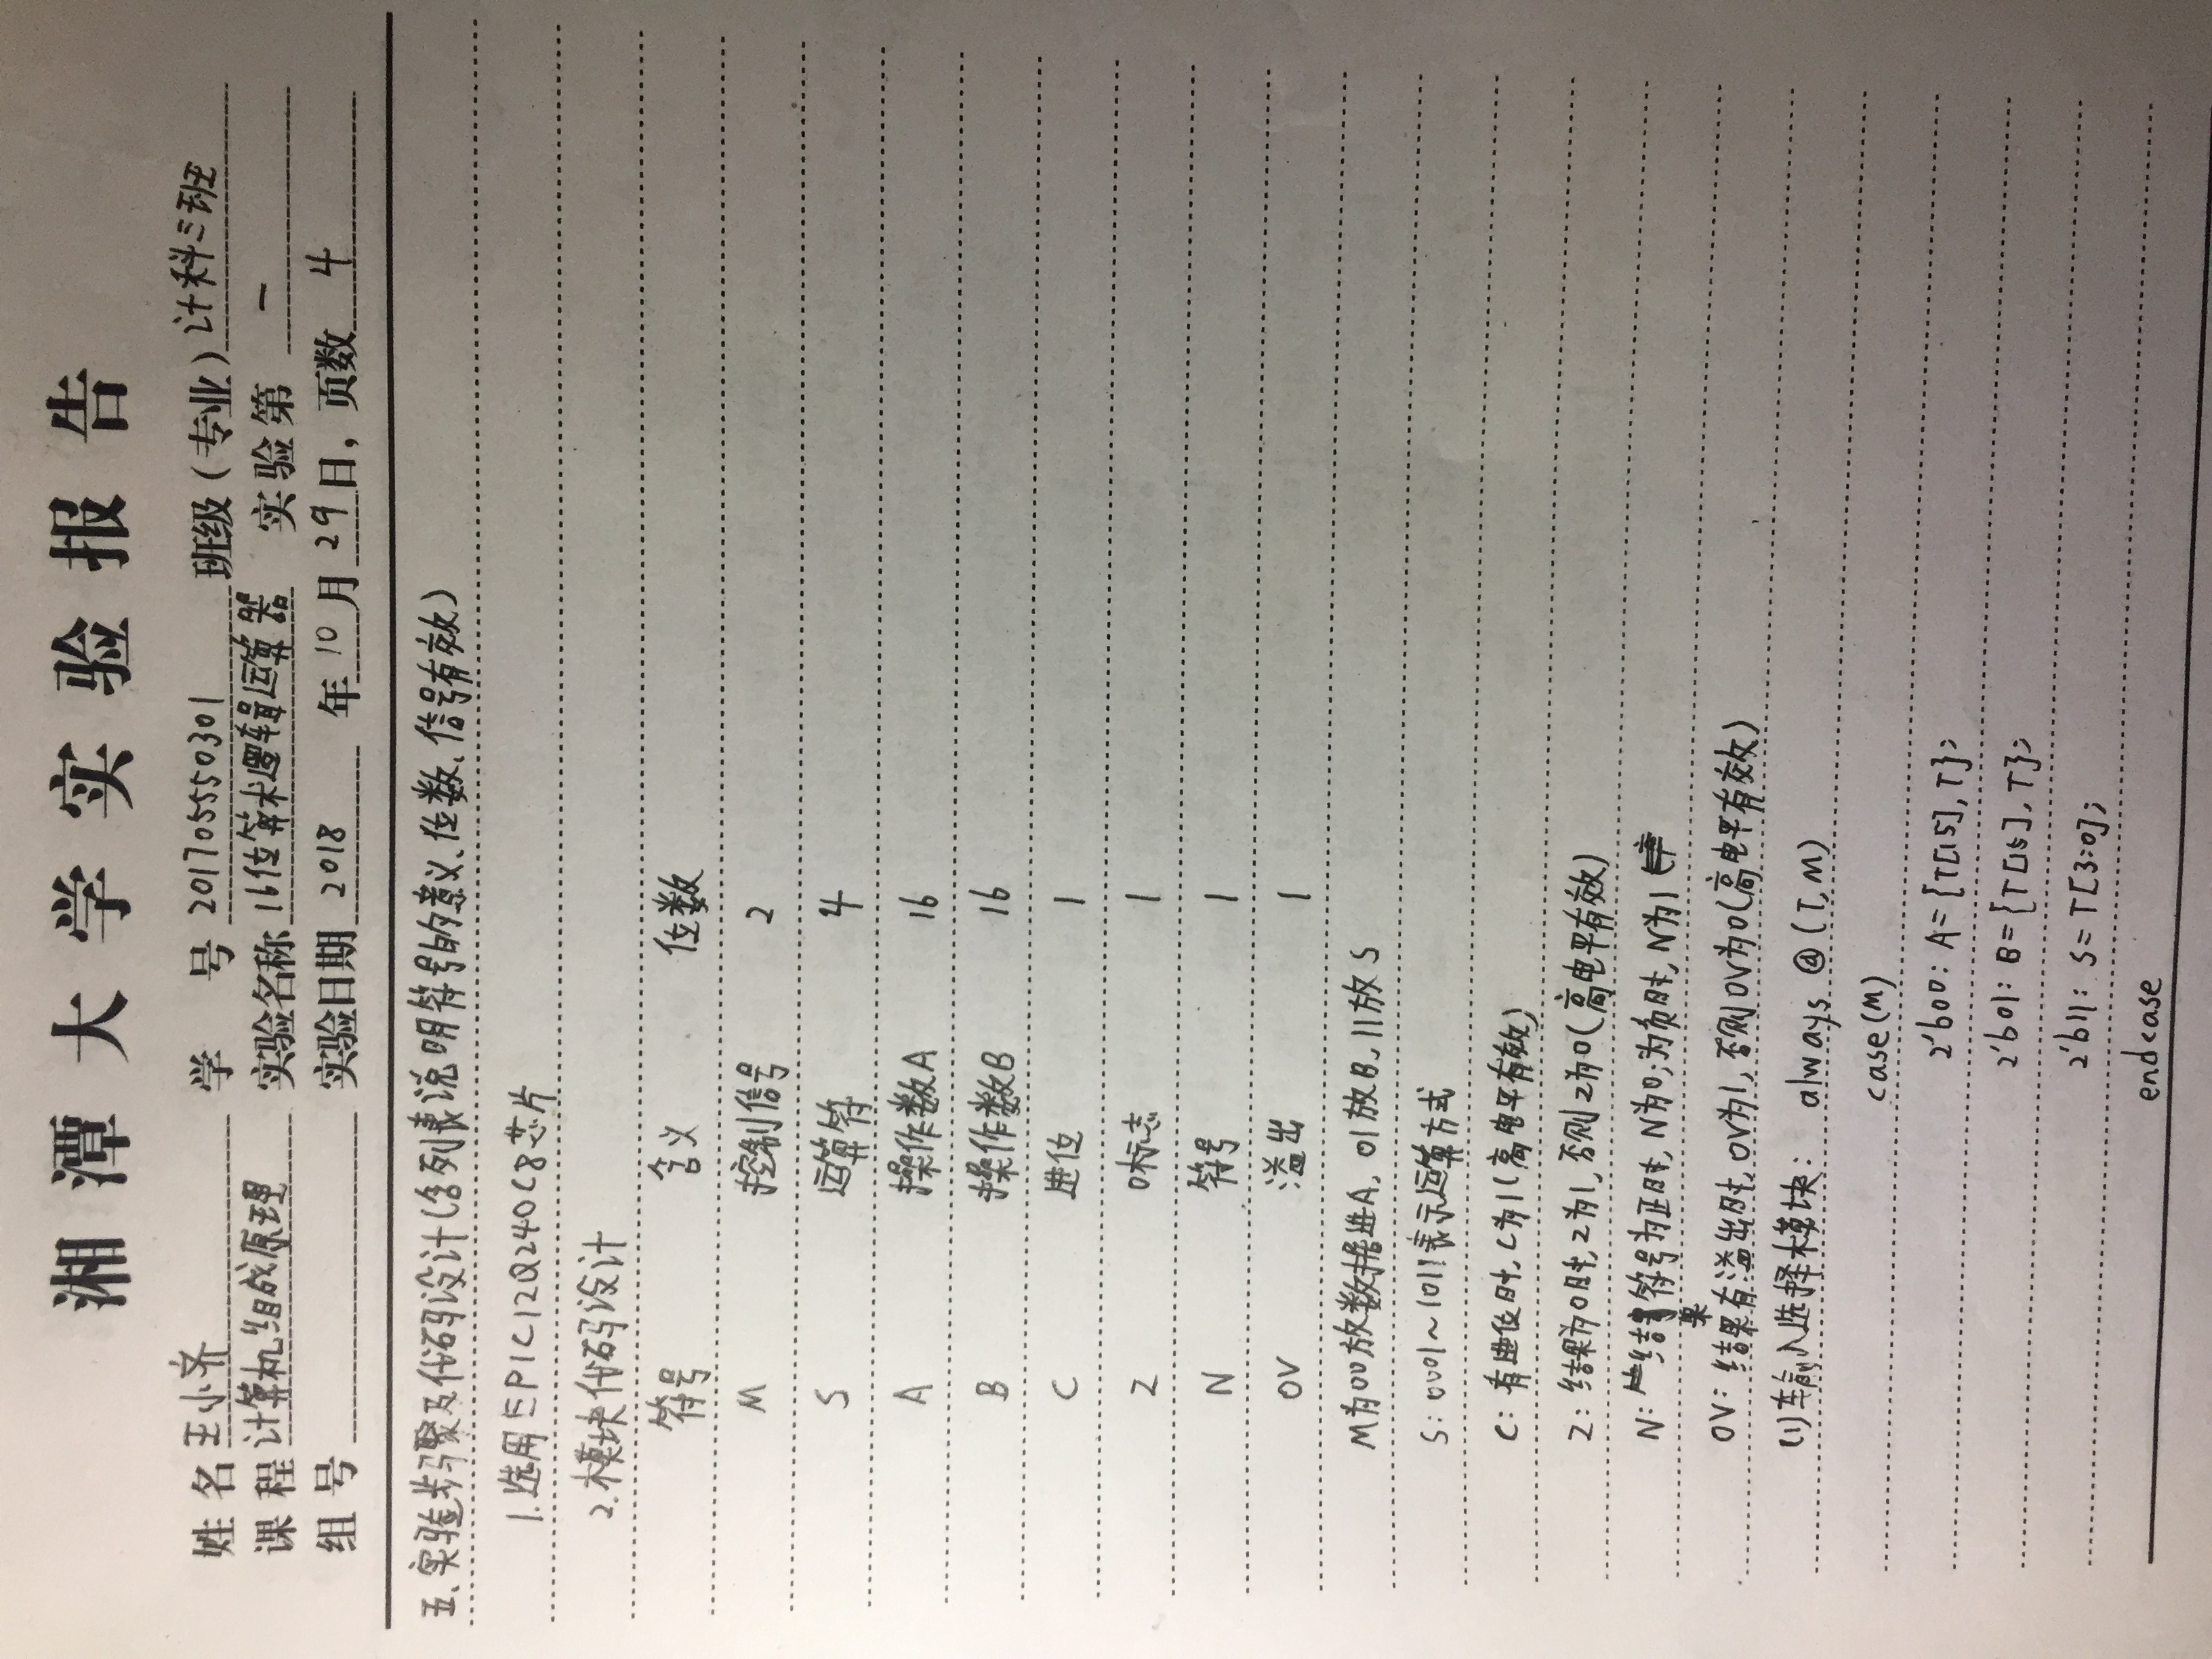 湘潭大学实验报告
姓名 王小齐 学号 201705550301 班级(专业) 计科三班
课程 计算机组成原理 实验名称 16位算术逻辑运算器 实验第 一
组号 实验日期 2018 年 10 月 29 日, 页数 4
五、实验步骤及代码设计(含列表说明符号的意义、位数、信号有效)
1.选用EP1C12Q240C8芯片
2.模块代码设计
符号 含义 位数
M 控制信号 2
S 运算符 4
A 操作数A 16
B 操作数B 16
C 进位 1
Z 0标志 1
N 符号 1
OV 溢出 1
M为00放数据进A, 01放B, 11放S
S: 0001~1011表示运算方式
C: 有进位时, C为1(高电平有效)
Z: 结果为0时, Z为1, 否则Z为0(高电平有效)
N: 结果符号为正时, N为0; 为负时, N为1
OV: 结果有溢出时, OV为1, 否则OV为0(高电平有效)
(1)输入选择模块: always @ (T, M)
case(M)
2'b00: A={T[15],T};
2'b01: B={T[15],T};
2'b11: S=T[3:0];
endcase